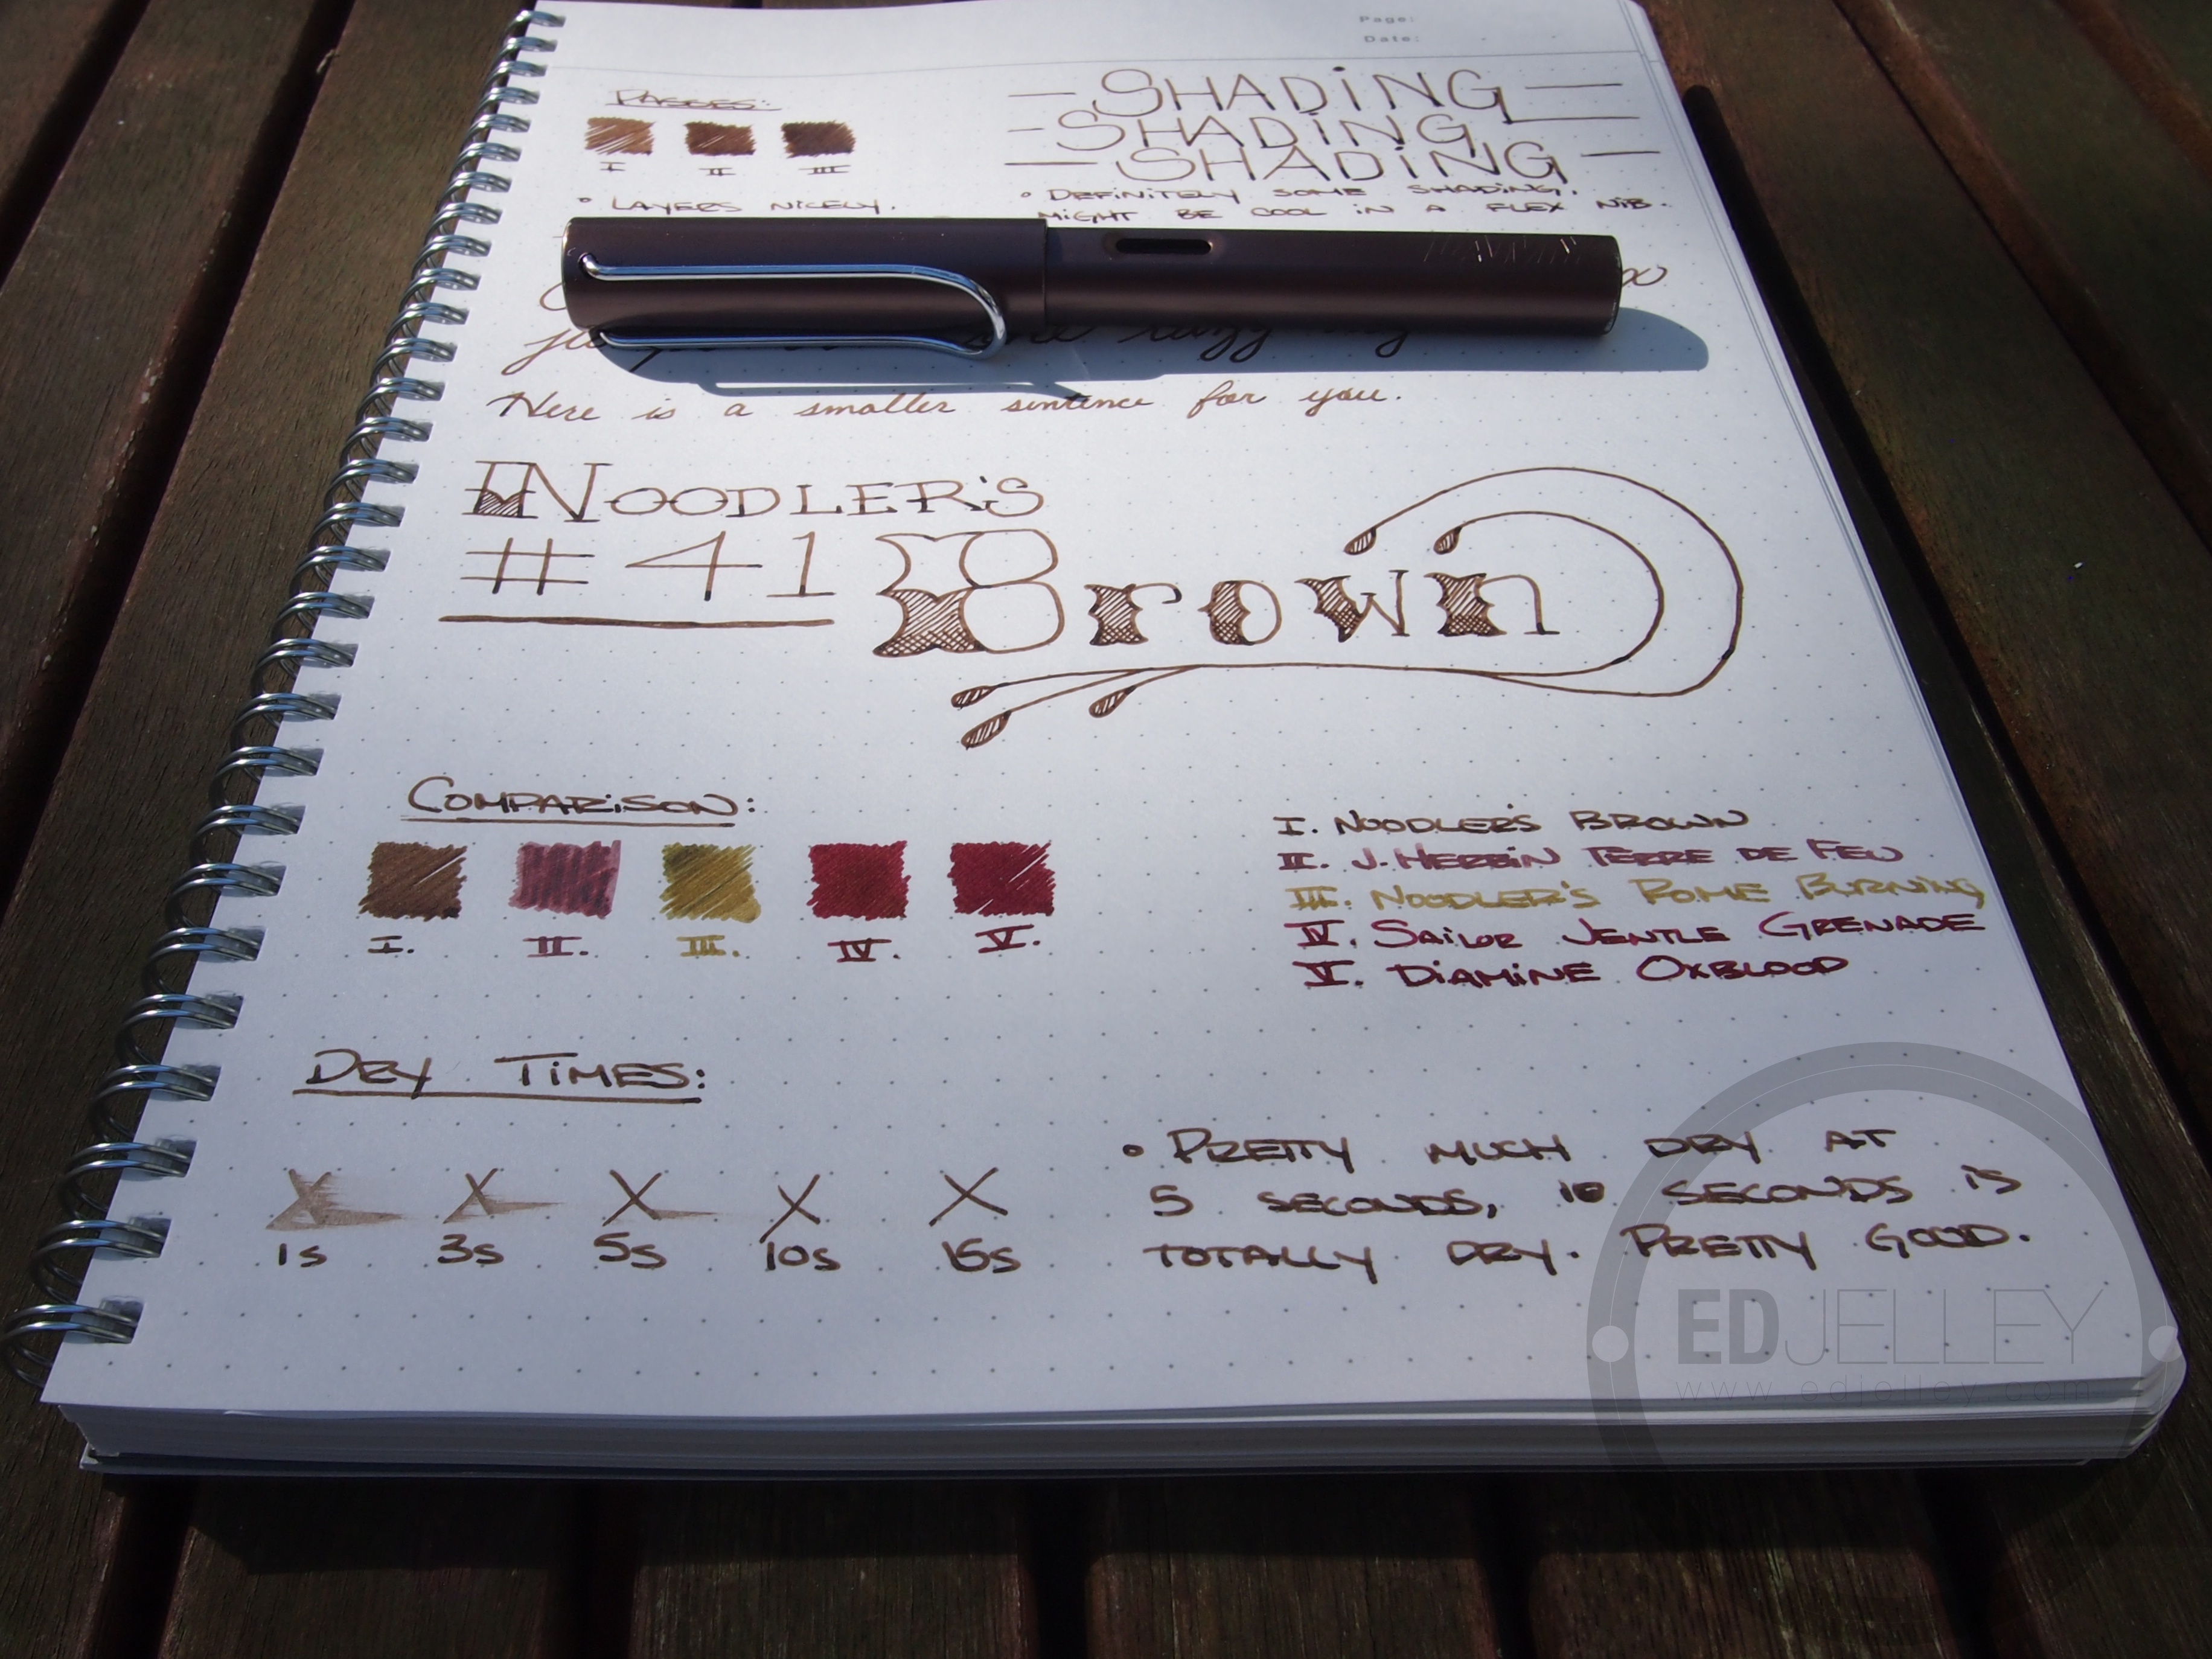 Page:
Date:
PASSES:
I II III
• LAYERS NICELY.
SHADING
SHADING
SHADING
• DEFINITELY SOME SHADING.
MIGHT BE COOL IN A FLEX NIB.
the lazy
Here is a smaller sentence for you.
NOODLER'S
#41 Brown
COMPARISON:
I. II. III. IV. V.
I. NOODLER'S BROWN
II. J. HERBIN TERRE DE FEU
III. NOODLER'S ROME BURNING
IV. SAILOR JENTLE GRENADE
V. DIAMINE OXBLOOD
DRY TIMES:
X X X X X
1s 3s 5s 10s 15s
• PRETTY MUCH DRY AT
5 SECONDS, 10 SECONDS IS
TOTALLY DRY. PRETTY GOOD.
EDJELLEY
www.edjelley.com